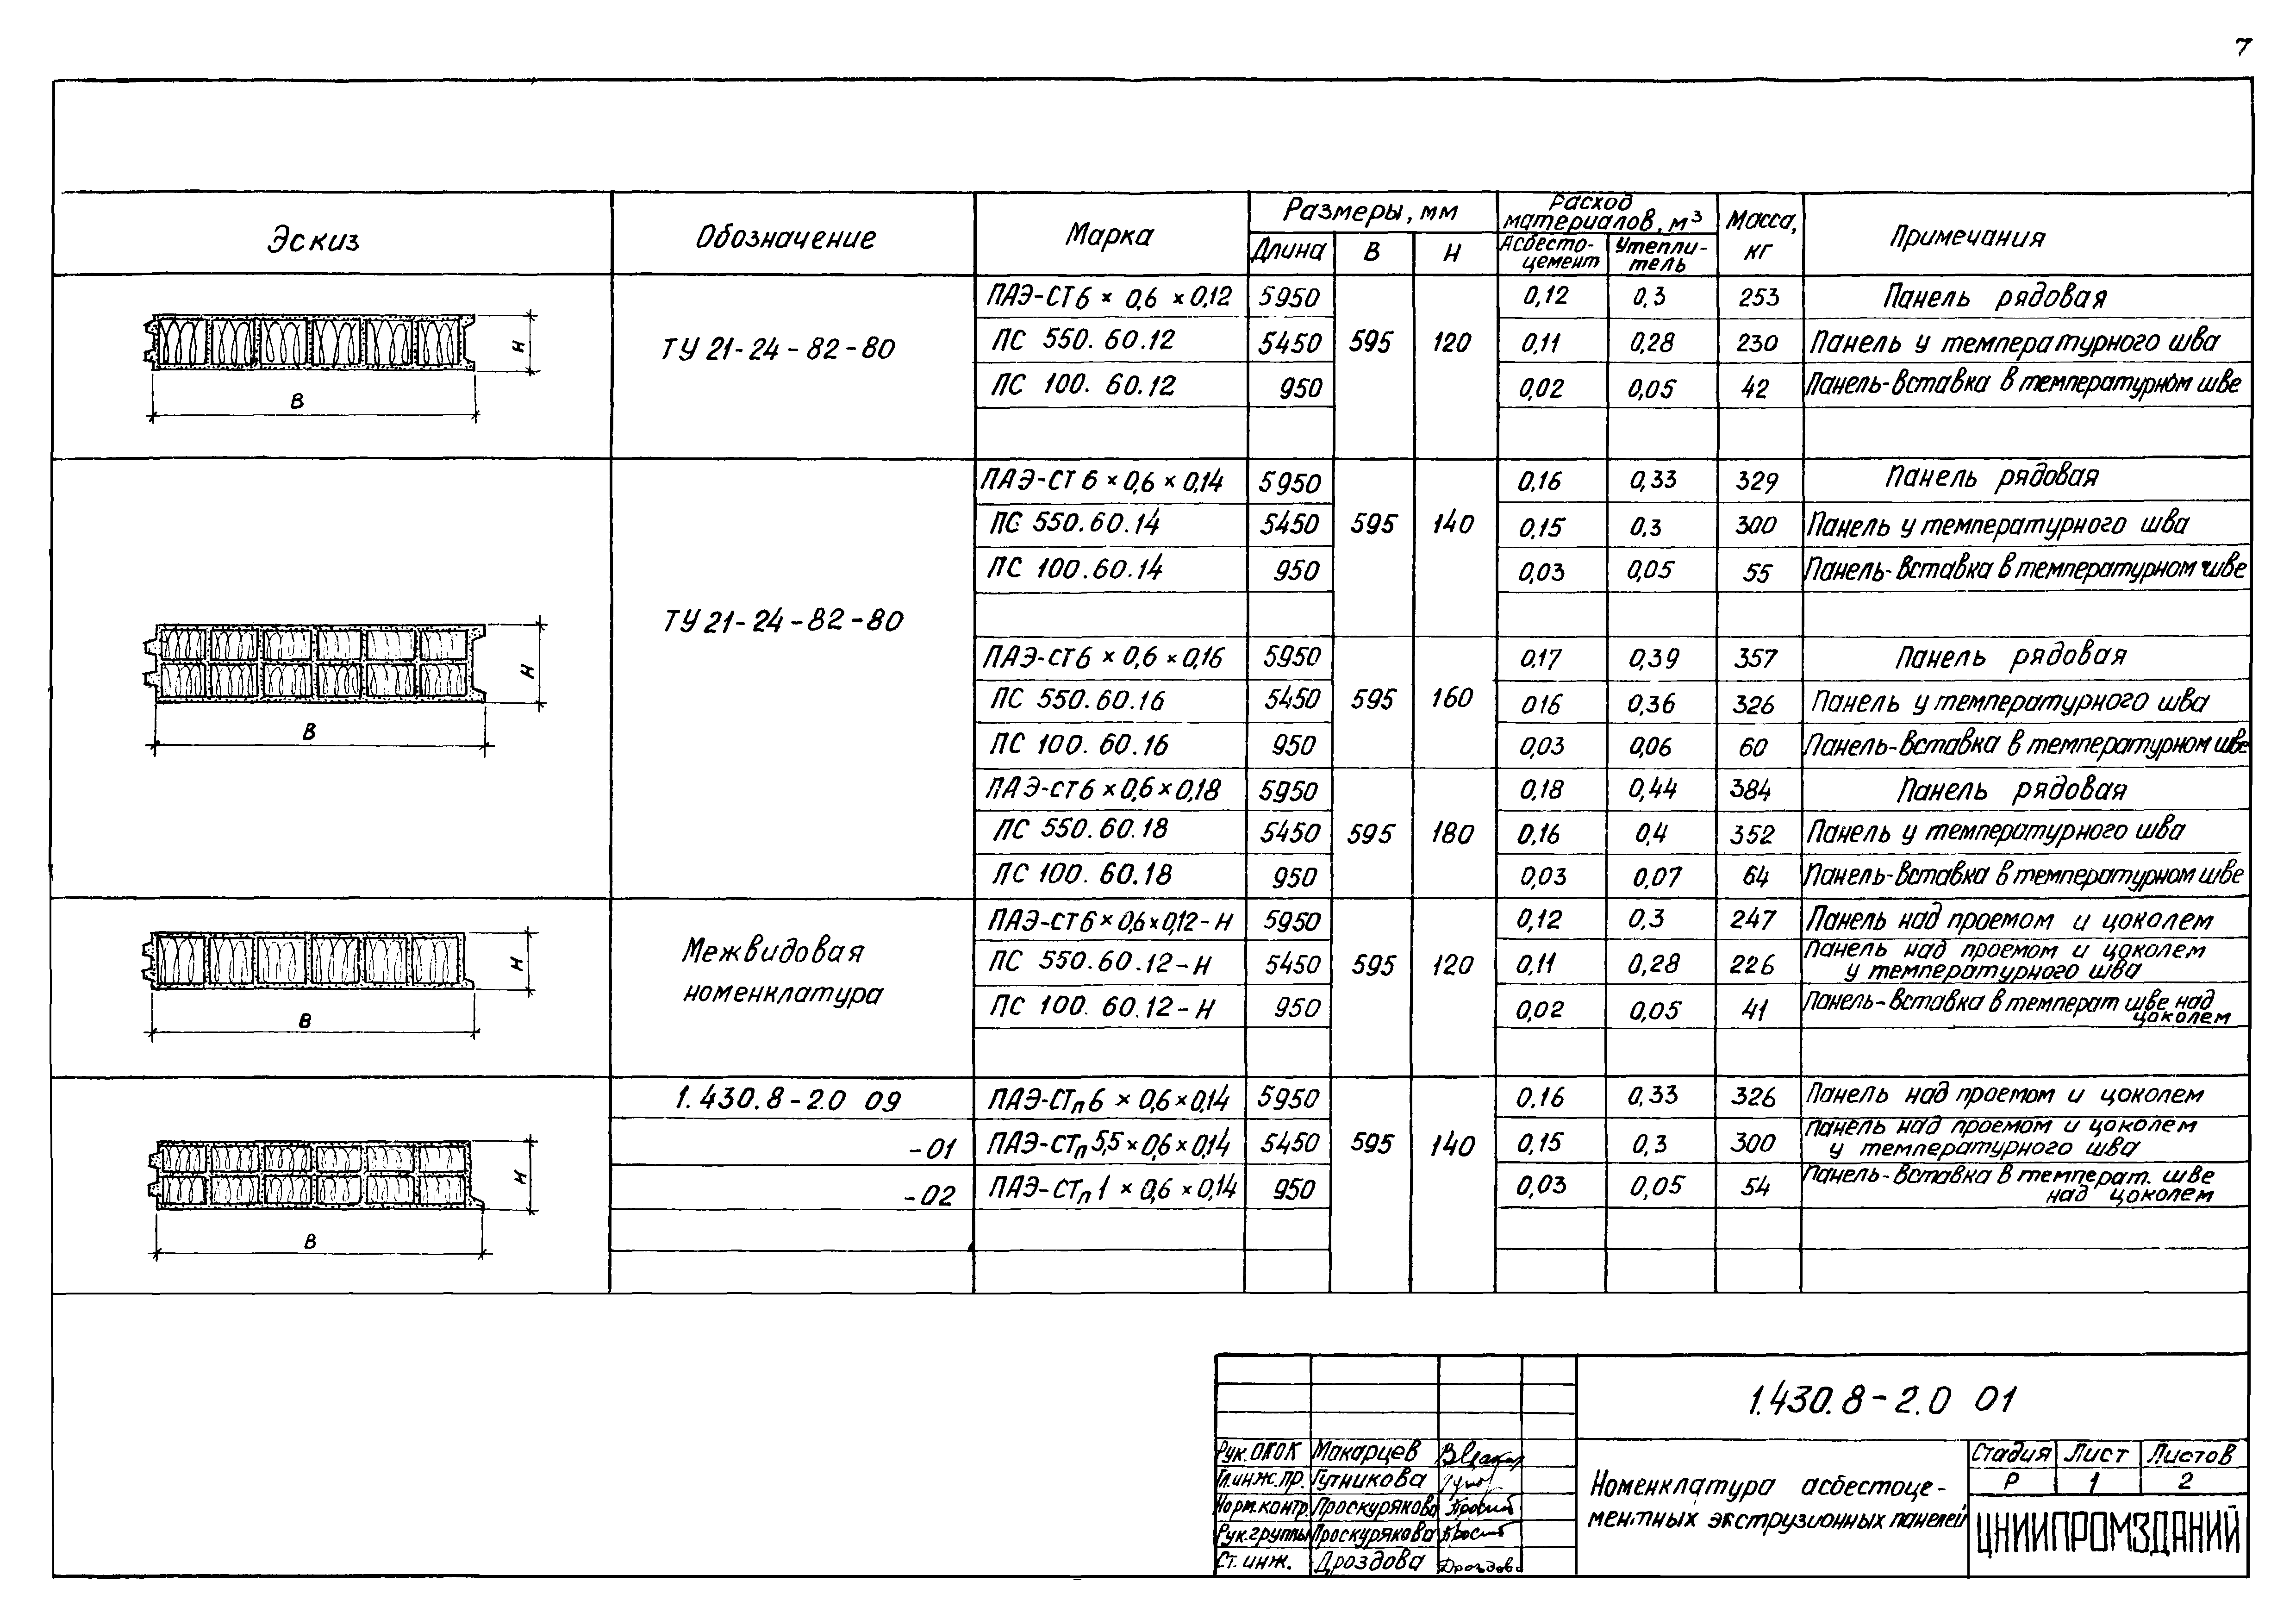 7
Эскиз Обозначение Марка Размеры, мм Расход материалов, м³ Масса, кг Примечания
Длина В Н Асбесто-цемент Утепли-тель
ПАЭ-СТ 6 × 0,6 × 0,12 5950 0,12 0,3 253 Панель рядовая
ТУ 21-24-82-80 ПС 550.60.12 5450 595 120 0,11 0,28 230 Панель у температурного шва
ПС 100.60.12 950 0,02 0,05 42 Панель-вставка в температурном шве
Н
В
ПАЭ-СТ 6 × 0,6 × 0,14 5950 0,16 0,33 329 Панель рядовая
ПС 550.60.14 5450 595 140 0,15 0,3 300 Панель у температурного шва
ПС 100.60.14 950 0,03 0,05 55 Панель-вставка в температурном шве
ТУ 21-24-82-80
ПАЭ-СТ 6 × 0,6 × 0,16 5950 0.17 0,39 357 Панель рядовая
ПС 550.60.16 5450 595 160 016 0,36 326 Панель у температурного шва
ПС 100.60.16 950 0,03 0,06 60 Панель-вставка в температурном шве
Н
В
ПАЭ-СТ 6 × 0,6 × 0,18 5950 0.18 0,44 384 Панель рядовая
ПС 550.60.18 5450 595 180 0,16 0,4 352 Панель у температурного шва
ПС 100.60.18 950 0,03 0,07 64 Панель-вставка в температурном шве
ПАЭ-СТ 6 × 0,6 × 0,12-Н 5950 0,12 0,3 247 Панель над проемом и цоколем
Межвидовая ПС 550.60.12-Н 5450 595 120 0,11 0,28 226 Панель над проемом и цоколем
у температурного шва
номенклатура ПС 100.60.12-Н 950 0,02 0,05 41 Панель-вставка в температ шве над
цоколем
Н
В
1.430.8-2.0 09 ПАЭ-СТп 6 × 0,6 × 0,14 5950 0.16 0,33 326 Панель над проемом и цоколем
-01 ПАЭ-СТп 5,5 × 0,6 × 0,14 5450 595 140 0,15 0,3 300 Панель над проемом и цоколем
у температурного шва
-02 ПАЭ-СТп 1 × 0,6 × 0,14 950 0,03 0,05 54 Панель-вставка в температ. шве
над цоколем
Н
В
1.430.8-2.0 01
Рук. ОКОК Макарцев
Гл.инж.пр. Гутникова
Норм.контр. Проскурякова
Рук.группы Проскурякова
Ст. инж. Дроздова Дроздова
Номенклатура асбестоце-
ментных экструзионных панелей
Стадия Лист Листов
Р 1 2
ЦНИИПРОМЗДАНИЙ